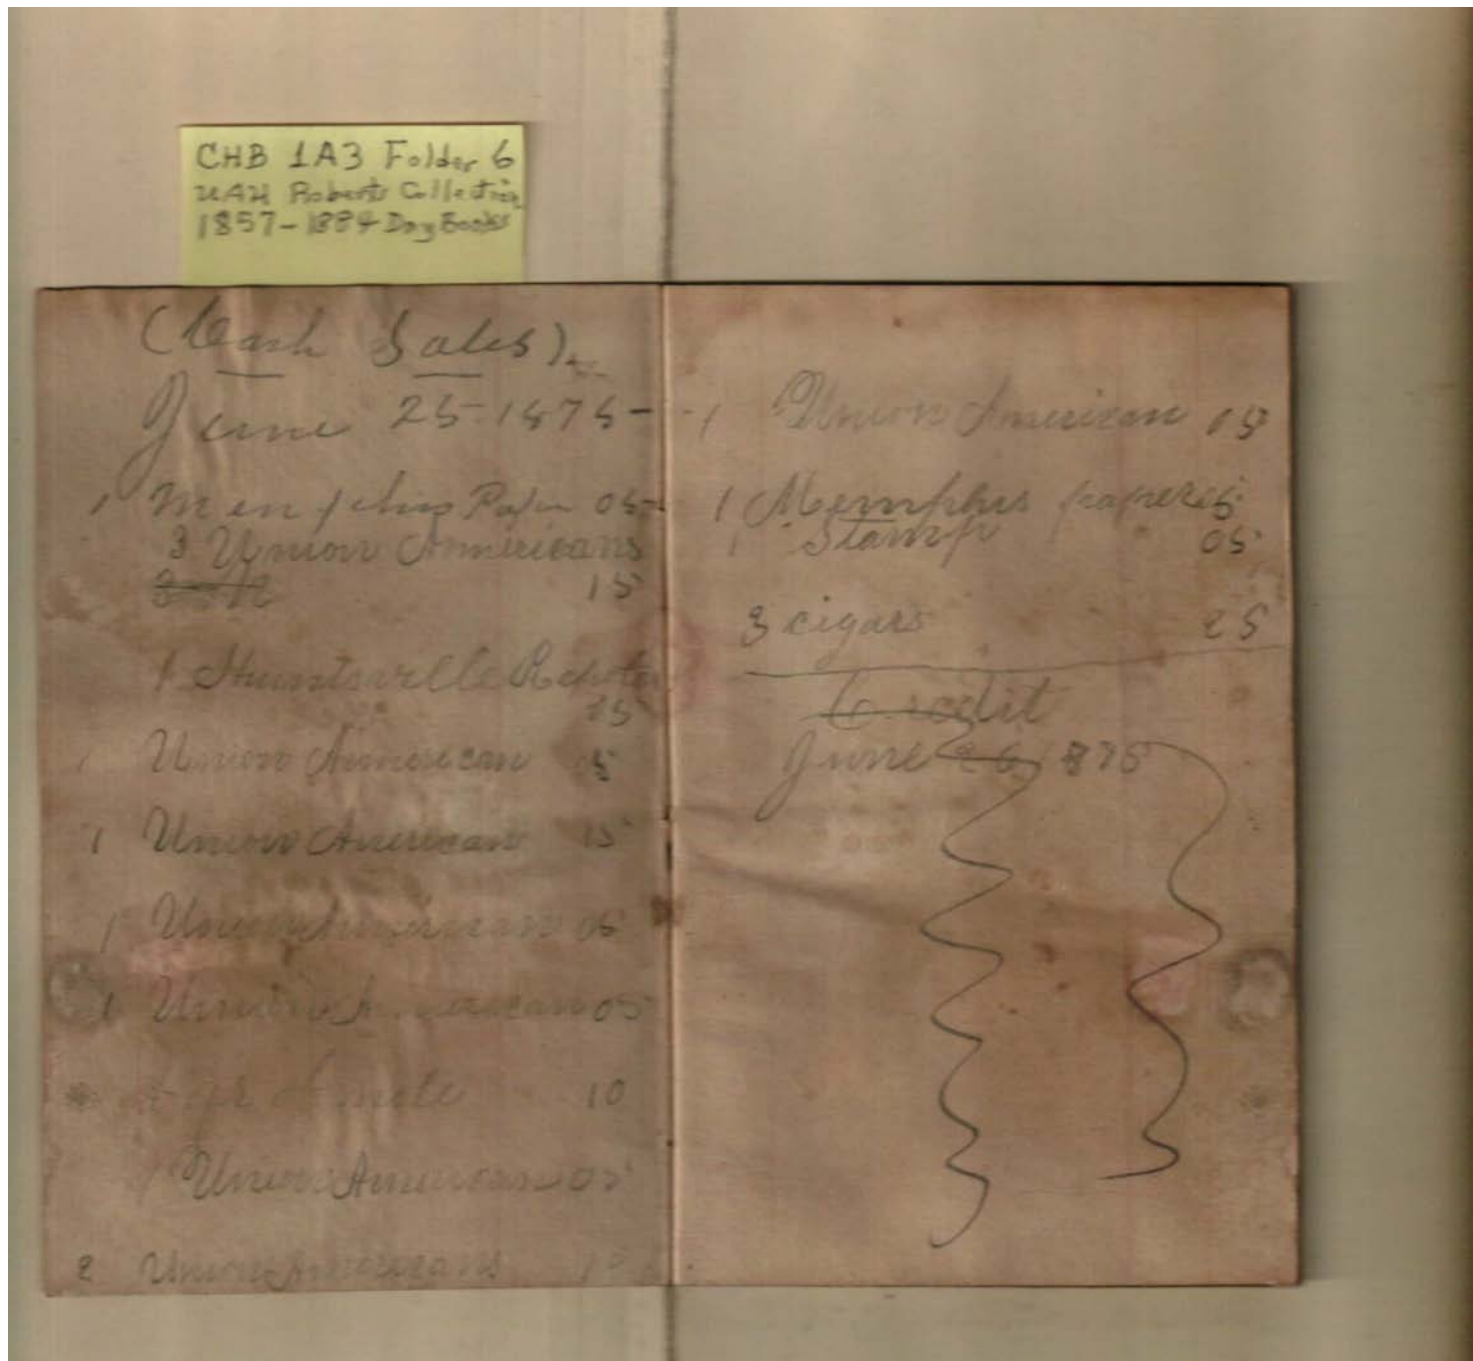 CHB 1A3 Folder 6
UAH Roberts Collection
1857-1884 Day Books
(Cash Sales).
June 25-1875-
1 Memphis Paper 05
3 Union Americans
15
1 Huntsville
Union American 5
1 Union American 15
1 Union American 05
1 Union American 05
10
Union American 05
2 Union Americans 10
1 Union American 05
1 Memphis paper 5
1 Stamp 05
3 cigars 25
Credit
June 26 1875